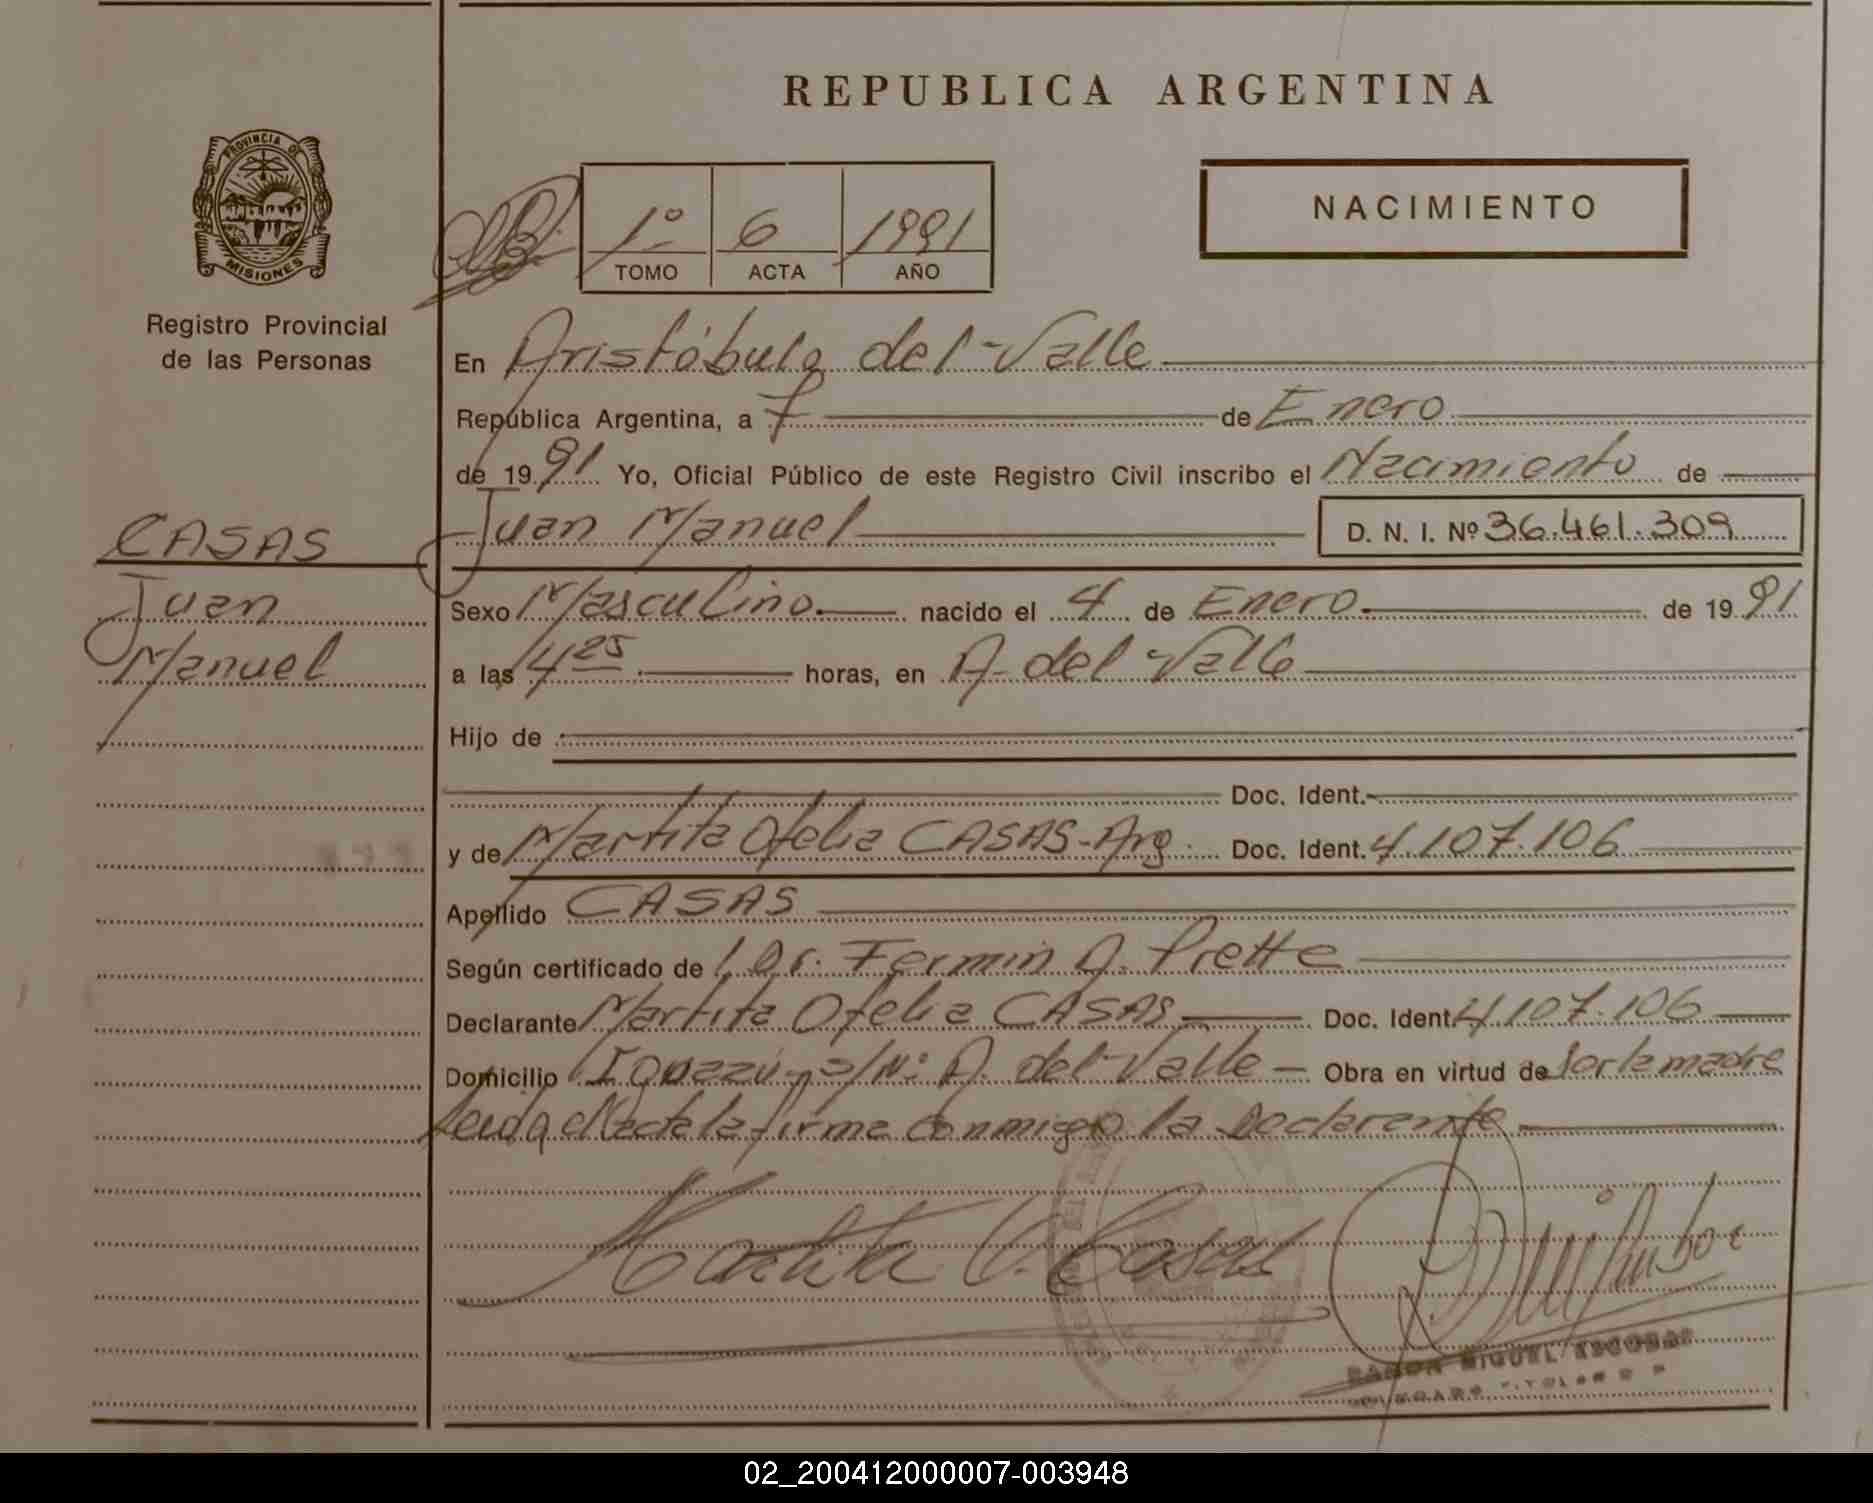 REPUBLICA ARGENTINA
PROVINCIA DE
MISIONES
Registro Provincial
de las Personas
1º 6 1991
TOMO ACTA AÑO
NACIMIENTO
En Aristóbulo del Valle
República Argentina, a 7 de Enero
de 1991 Yo, Oficial Público de este Registro Civil inscribo el Nacimiento de
CASAS
Juan Manuel D. N. I. Nº 36.461.309
Juan
Manuel
Sexo Masculino nacido el 4 de Enero de 1991
a las 4 25 horas, en A. del Valle
Hijo de
Doc. Ident.
y de Martita Ofelia CASAS-Arg. Doc. Ident. 4.107.106
Apellido CASAS
Según certificado de Dr. Fermin A. Prette
Declarante Martita Ofelia CASAS Doc. Ident. 4.107.106
Domicilio Iguazú s/Nº A. del Valle Obra en virtud de ser la madre
Leida el Acta la firma conmigo la Declarante
Martita O. Casas
RAMON MIGUEL ESCOBAR
02_200412000007-003948